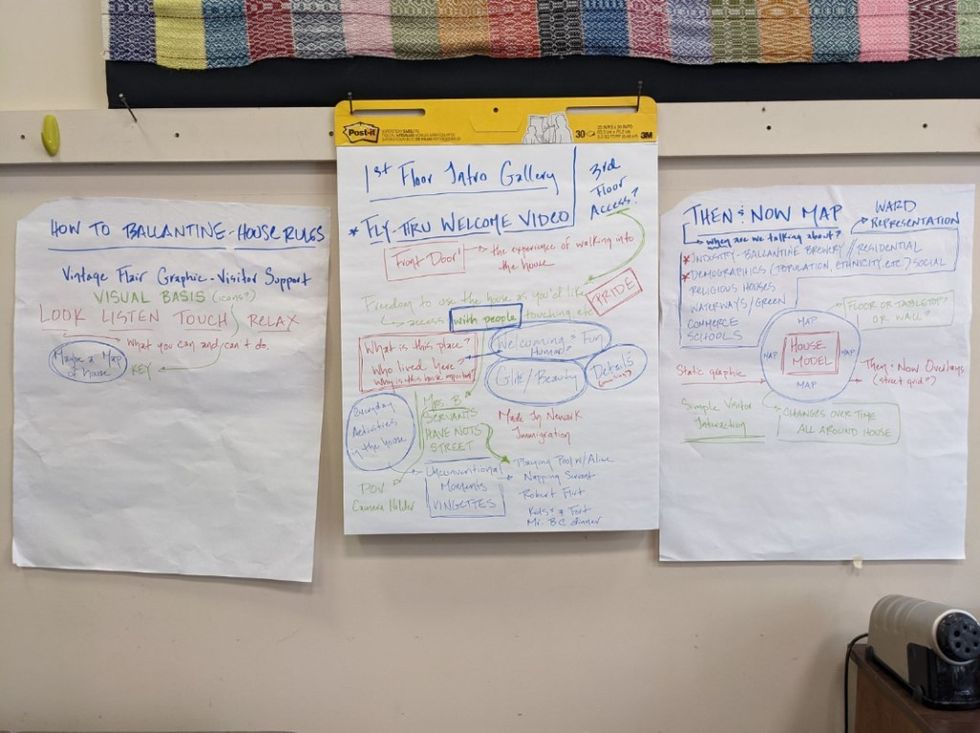 HOW TO BALLANTINE-HOUSE RULES
Vintage Flair Graphic-Visitor Support
VISUAL BASIS (icons?)
LOOK LISTEN TOUCH RELAX
What you can and can't do.
Maybe a Map
of house
KEY
Post-it
30
3M
1st Floor Intro Gallery
* FLY-THRU WELCOME VIDEO
3rd
Floor
Access?
"Front Door"
the experience of walking into
the house
Freedom to use the house as you'd like
PRIDE
access with people touching, etc
What is this place?
Who lived here?
Why is this house important?
Welcoming & Fun
Human?
Glitz/Beauty
Details
Everyday
Activities
in the house
Mrs. B
SERVANTS
HAVE NOTS
STREET
Made In Newark
Immigration
POV
Camera Holder
Unconventional
Moments
VINGETTES
Playing Pool w/Alice
Napping Servant
Robert Flirt
Kids & Fort
Mr. BC dinner
THEN & NOW MAP
WARD
REPRESENTATION
when are we talking about?
* INDUSTRY-BALLANTINE BREWERY // RESIDENTIAL
* DEMOGRAPHICS (POPULATION, ETHNICITY, etc.) SOCIAL
RELIGIOUS HOUSES
WATERWAYS/GREEN
COMMERCE
SCHOOLS
FLOOR OR TABLETOP?
OR WALL?
MAP
MAP
HOUSE
MODEL
MAP
MAP
Static graphic
Then & Now Overlays
(street grid?)
Simple Visitor
Interaction
CHANGES OVER TIME
ALL AROUND HOUSE